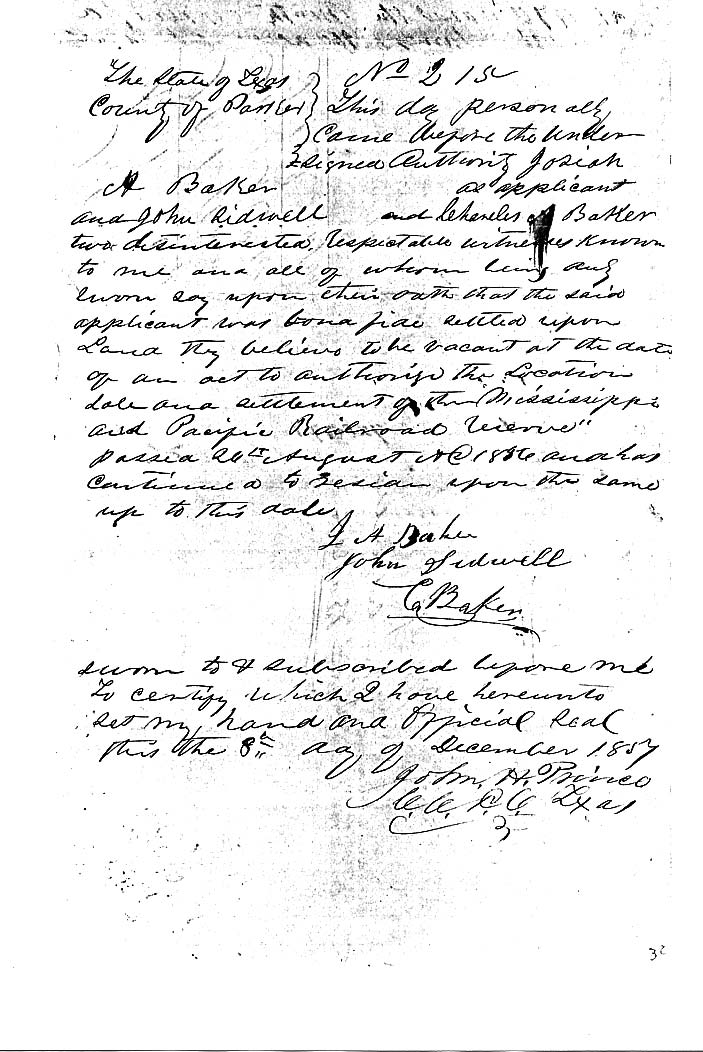 The State of Texas } No 215
County of Parker } This day personally
Came before the Under
signed Authority Josiah
A Baker as applicant
and John Sidwell and Charles A Baker
two disinterested respectable witnesses Known
to me and all of whom being duly
sworn say upon their oath that the said
applicant was bona fide settled upon
Land they believe to be vacant at the date
of an act to authorize the Location
Sale and settlement of the Mississippi
and Pacific Railroad reserve"
passed 26th August AD 1856 and has
continued to reside upon the same
up to this date
J A Baker
John Sidwell
C A Baker
sworn to & subscribed before me
To certify which I have hereunto
set my hand and official Seal
this the 8th day of December 1857
John H. Prince
C.C. P.C. Texas
32